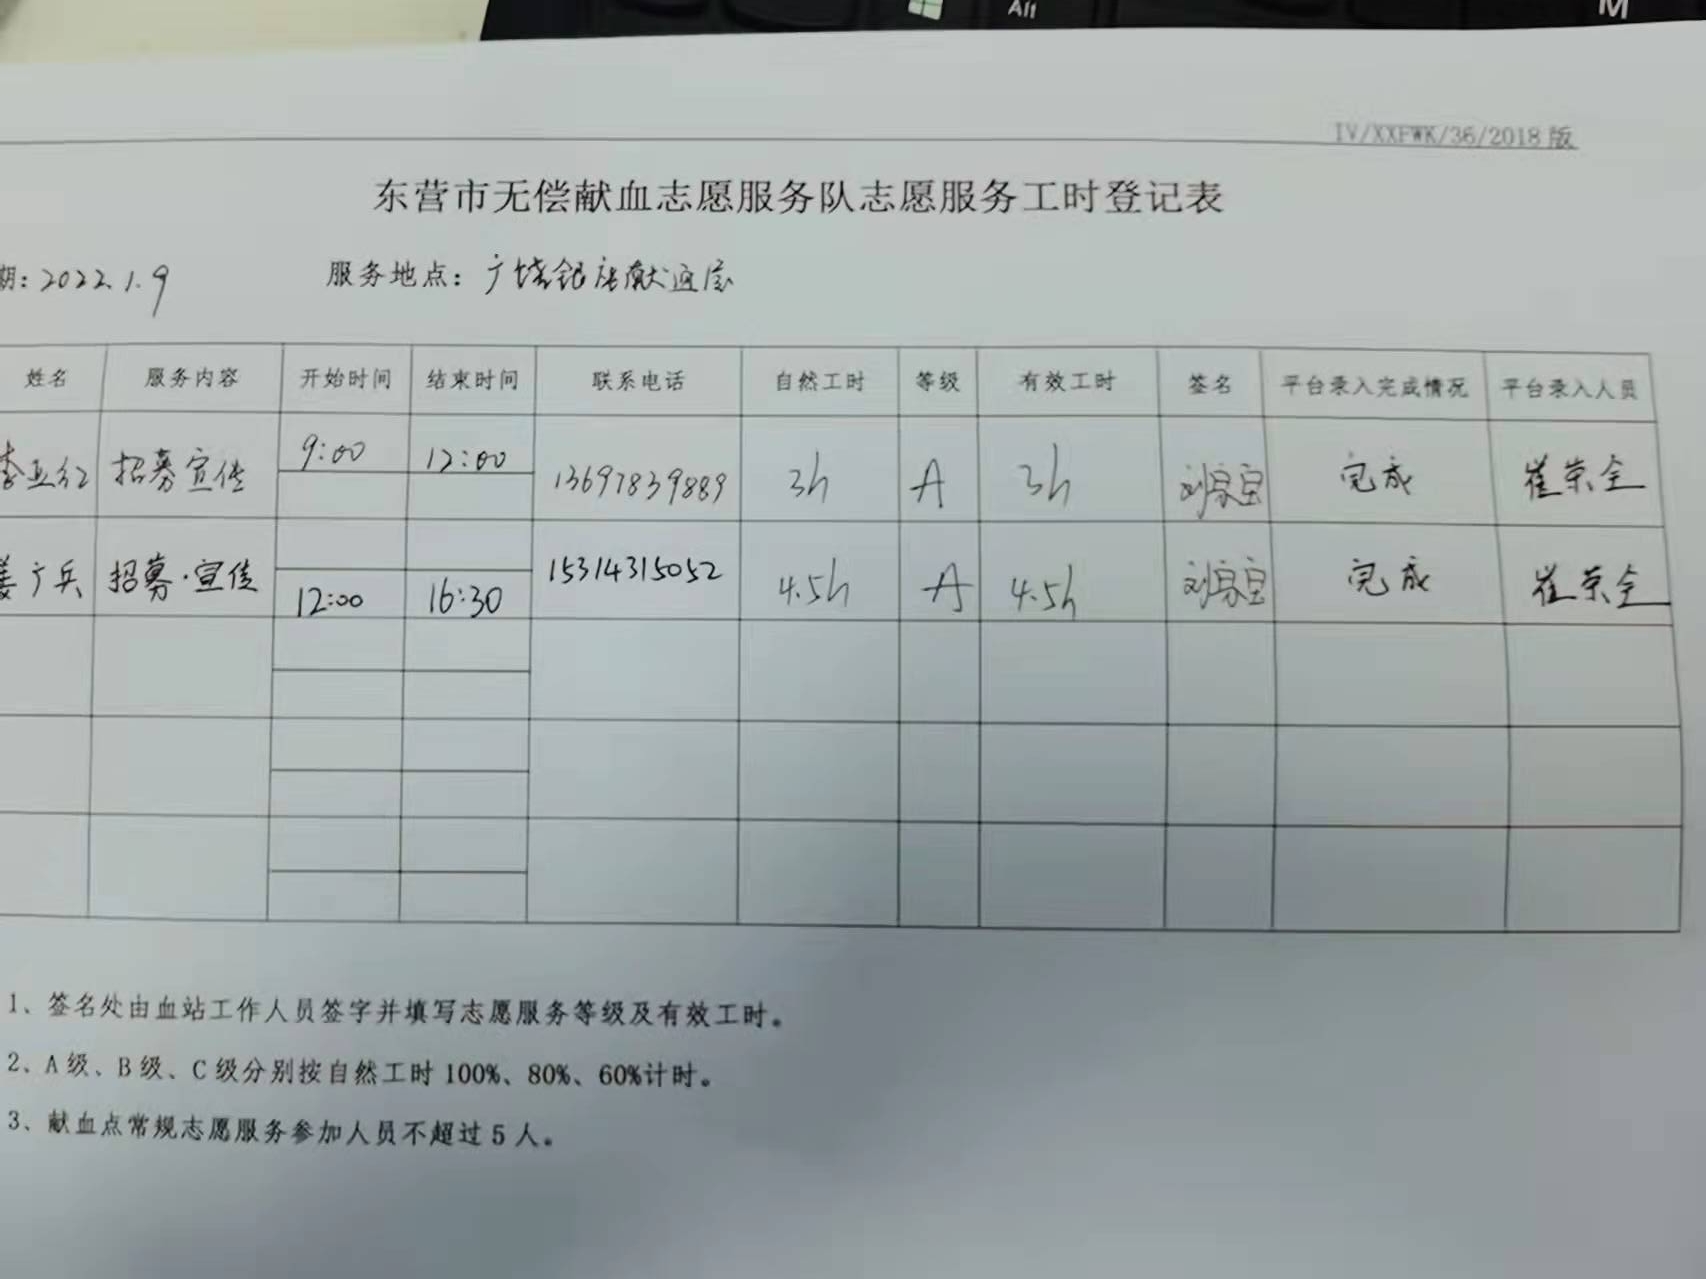 Alt
M
IV/XXFWK/36/2018 版
东营市无偿献血志愿服务队志愿服务工时登记表
期: 2022.1.9 服务地点: 广饶银座献血屋
姓名 服务内容 开始时间 结束时间 联系电话 自然工时 等级 有效工时 签名 平台录入完成情况 平台录入人员
李亚红 招募宣传 9:00 12:00 13697839889 3h A 3h 完成 崔荣全
姜广兵 招募·宣传 12:00 16:30 15314315052 4.5h A 4.5h 完成 崔荣全
1、签名处由血站工作人员签字并填写志愿服务等级及有效工时。
2、A级、B级、C级分别按自然工时 100%、80%、60%计时。
3、献血点常规志愿服务参加人员不超过 5 人。